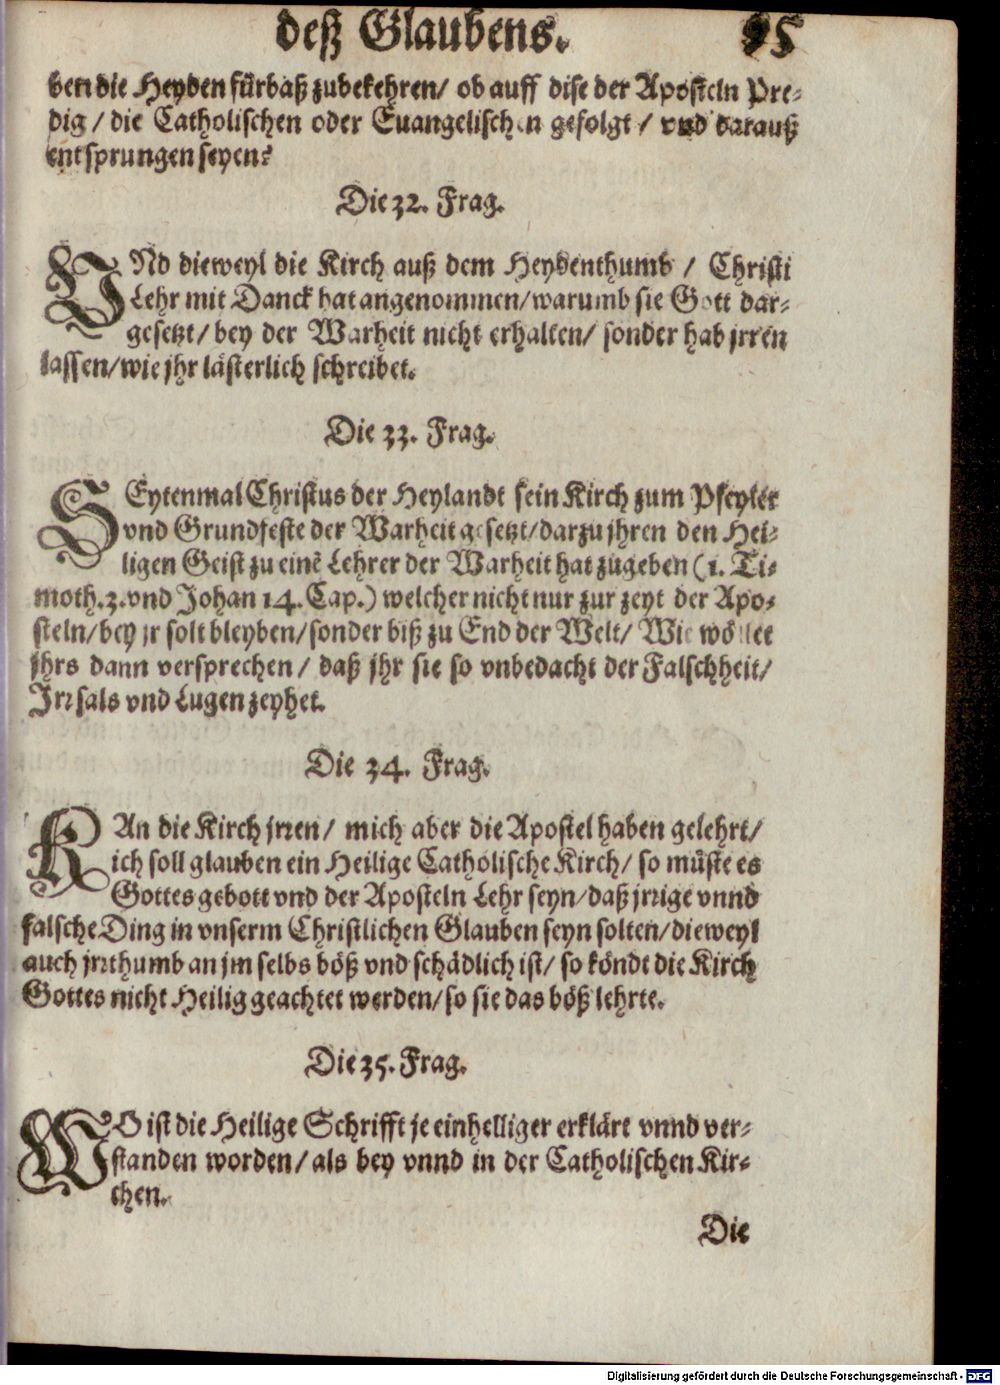 deß Glaubens. 95
ben die Heyden fürbaß zubekehren/ ob auff dise der Aposteln Pre-
dig / die Catholischen oder Euangelischen gefolgt / vnd darauß
entsprungen seyen?
Die 32. Frag.
VNd dieweyl die Kirch auß dem Heydenthumb / Christi
Lehr mit Danck hat angenommen/warumb sie Gott dar-
gesetzt/ bey der Warheit nicht erhalten/ sonder hab jrren
lassen/wie jhr lästerlich schreibet.
Die 33. Frag.
SEytenmal Christus der Heylandt sein Kirch zum Pfeyler
vnd Grundfeste der Warheit gesetzt/darzu jhren den Hei-
ligen Geist zu einē Lehrer der Warheit hat zugeben (1. Ti-
moth.3.vnd Johan 14. Cap.) welcher nicht nur zur zeyt der Apo-
steln/bey jr solt bleyben/sonder biß zu End der Welt/ Wie wöllet
jhrs dann versprechen / daß jhr sie so vnbedacht der Falschheit/
Jrrsals vnd Lugen zeyhet.
Die 34. Frag.
KAn die Kirch jrren/ mich aber die Apostel haben gelehrt/
ich soll glauben ein Heilige Catholische Kirch/ so müste es
Gottes gebott vnd der Aposteln Lehr seyn/daß jrrige vnnd
falsche Ding in vnserm Christlichen Glauben seyn solten/dieweyl
auch jrrthumb an jm selbs böß vnd schädlich ist/ so köndt die Kirch
Gottes nicht Heilig geachtet werden/so sie das böß lehrte.
Die 35. Frag.
WO ist die Heilige Schrifft je einhelliger erkläret vnnd ver-
standen worden/als bey vnnd in der Catholischen Kir-
chen.
Die
Digitalisierung gefördert durch die Deutsche Forschungsgemeinschaft - DFG